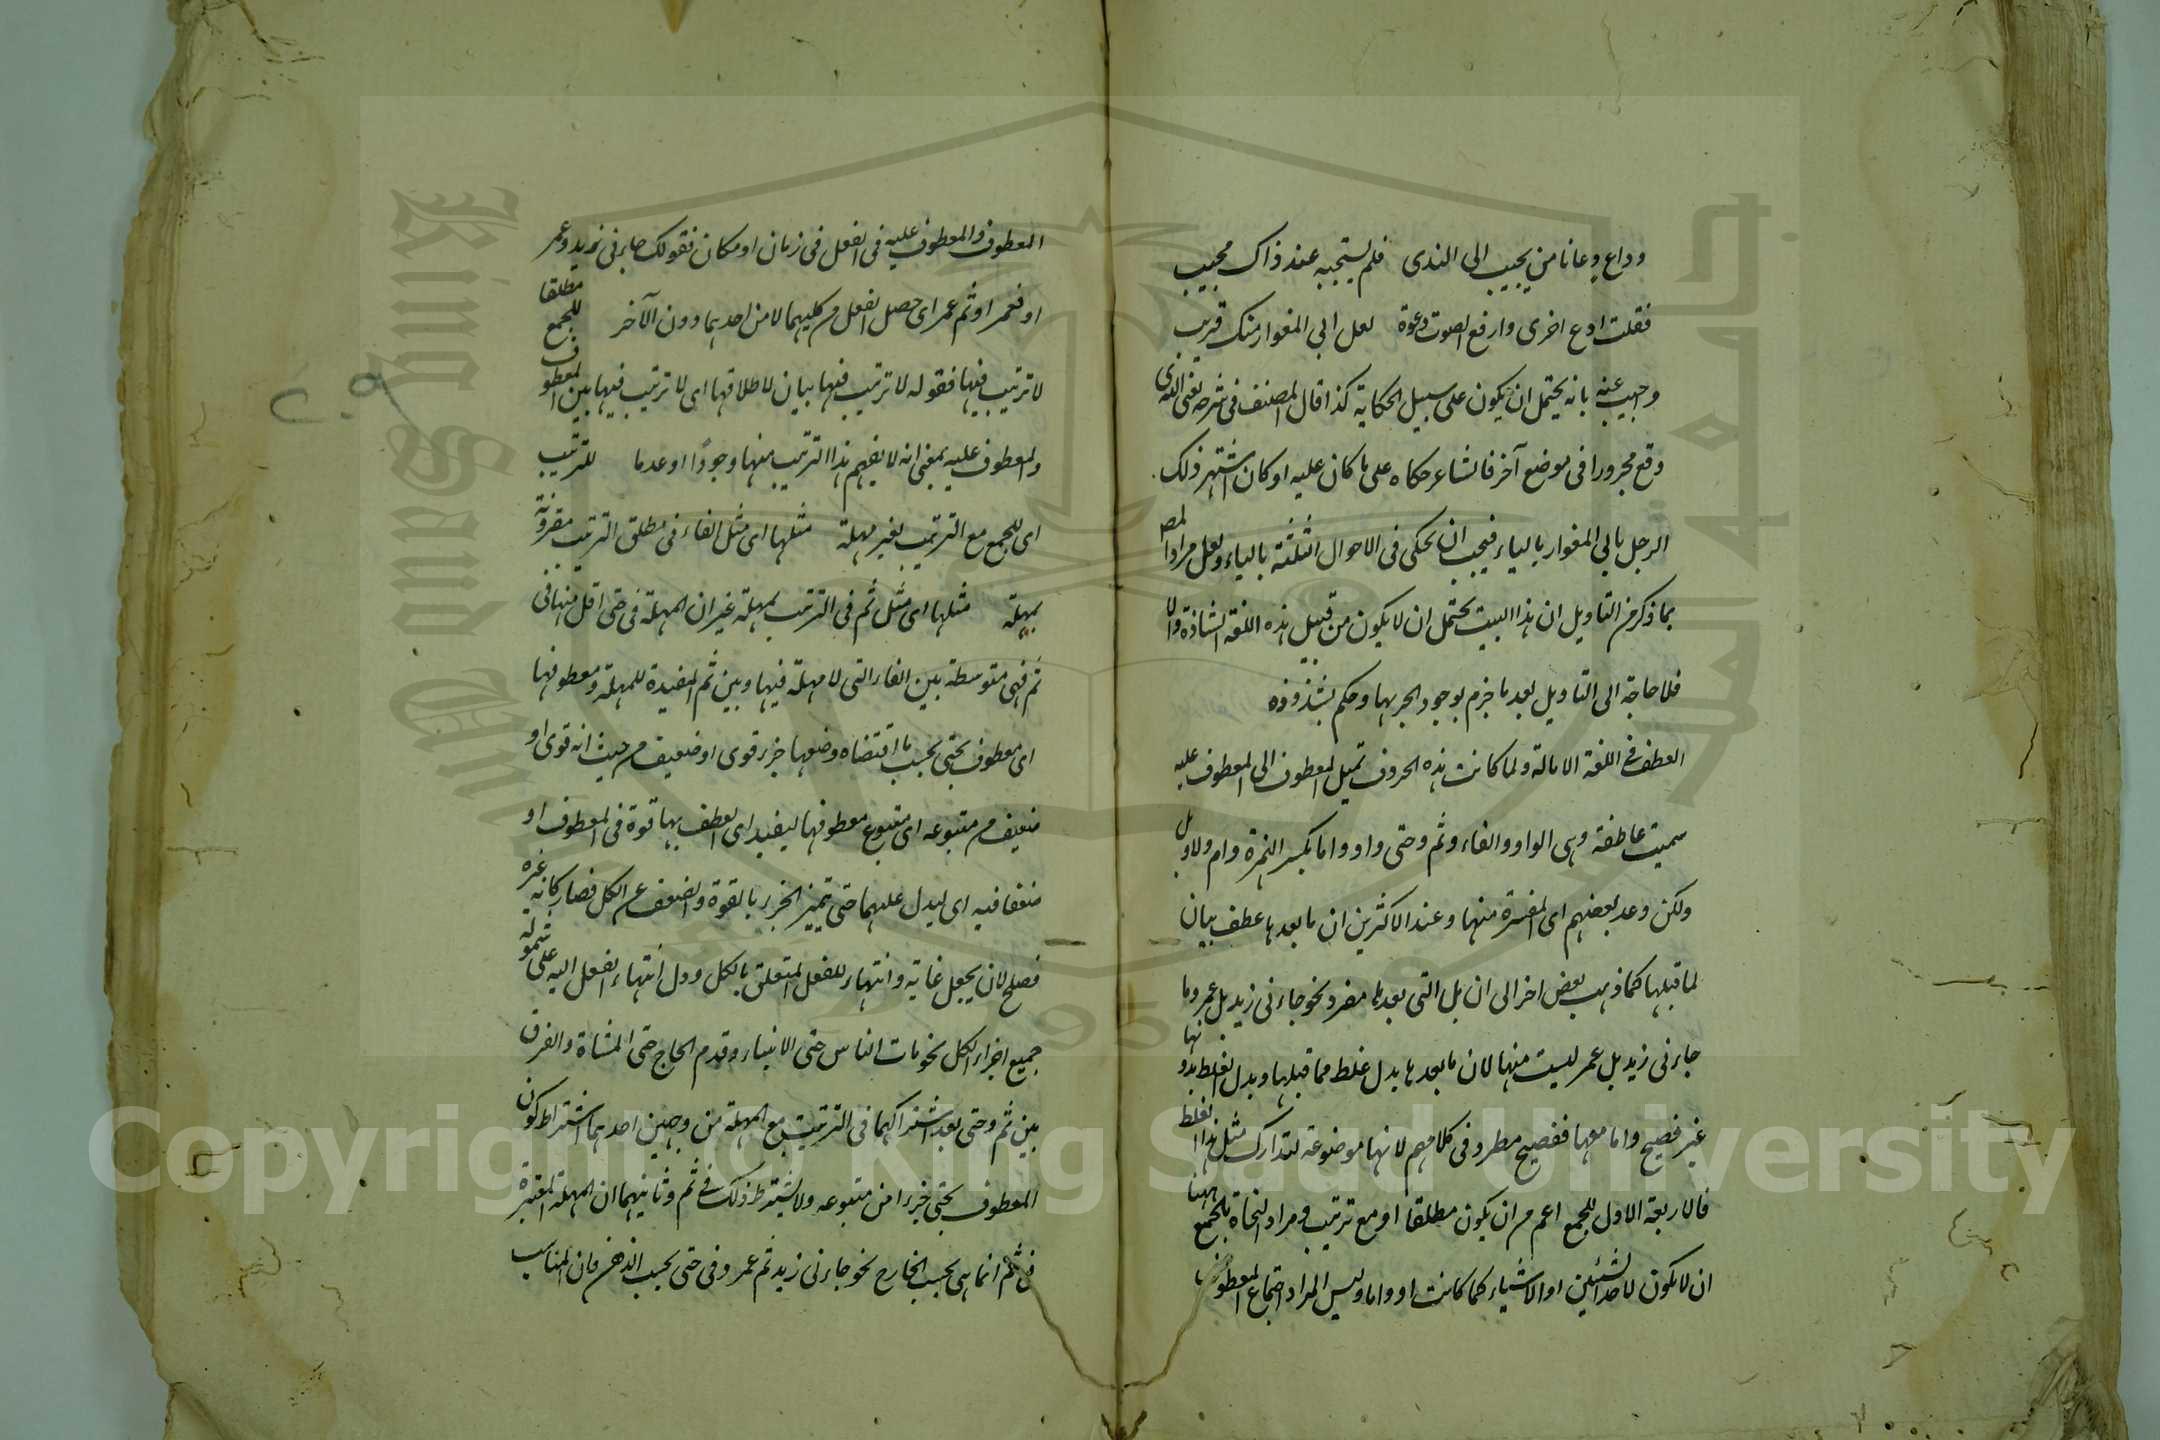 وداع دعانا من يجيب الى الندى فلم يستجبه عند ذاك مجيب
فقلت ادع اخرى وارفع الصوت دعوة لعل ابى المغوار منك قريب
واجيب عنه بانه يحتمل ان يكون على سبيل الحكاية كذا قال المصنف فى شرحه يعنى الذى
وقع مجرورا فى موضع آخر فالشاعر حكاه على ما كان عليه او كان اشتهر ذلك
الرجل بابى المغوار بالياء فيجب ان يحكى فى الاحوال الثلثة بالياء ولعل مراد المص
بما ذكر من التاويل ان هذا البيت يحتمل ان لا يكون من قبيل هذه اللغة الشاذة والا
فلا حاجة الى التاويل بعد ما جزم بوجود الجر بها وحكم بشذوذه
العطف فى اللغة الامالة ولما كانت هذه الحروف تميل المعطوف الى المعطوف عليه
سميت عاطفة وهى الواو والفاء وثم وحتى واو واما بكسر الهمزة وام ولا وبل
ولكن وعد بعضهم اى المفسرة منها وعند الاكثرين ان ما بعدها عطف بيان
لما قبلها كما ذهب بعض اخر الى ان بل التى بعدها مفرد نحو جاءنى زيد بل عمرو وما
جاءنى زيد بل عمر ليست منها لان ما بعدها بدل غلط مما قبلها وبدل الغلط بدونها
غير فصيح واما معها ففصيح مطرد فى كلامهم لانها موضوعة لتدارك مثل هذا الغلط
فالاربعة الاول للجمع اعم من ان يكون مطلقا او مع ترتيب ومراد النحاة بالجمع ههنا
ان لا يكون لاحد الشيئين او الاشياء كما كانت او واما وليس المراد اجتماع المعطوف
المعطوف والمعطوف عليه فى الفعل فى زمان او مكان فقولك جاءنى زيد وعمر
او فعمر او ثم عمر اى حصل الفعل من كليهما لا من احدهما دون الآخر للجمع مطلقا
لا ترتيب فيها فقوله لا ترتيب فيها بيان لاطلاقها اى لا ترتيب فيها بين المعطوف
والمعطوف عليه بمعنى انه لا يفهم هذا الترتيب منها وجودا او عدما للترتيب
اى للجمع مع الترتيب بغير مهلة مثلها اى مثل الفاء فى مطلق الترتيب مقرونة
بمهلة مثلها اى مثل ثم فى الترتيب بمهلة غير ان المهلة فى حتى اقل منها فى
ثم فهى متوسطة بين الفاء التى لا مهلة فيها وبين ثم المفيدة للمهلة ومعطوفها
اى معطوف بحتى بحسب ما اقتضاه وضعها جزء قوى او ضعيف من حيث انه قوى او
ضعيف من متبوعه اى متبوع معطوفها ليفيد اى العطف بها قوة فى المعطوف او
ضعفا فيه اى ليدل عليهما حتى تميز الجزء بالقوة والضعف عن الكل فصار كانه غيره
فصلح لان يجعل غاية وانتهاء للفعل المتعلق بالكل ودل انتهاء الفعل اليه على شموله
جميع اجزاء الكل نحو مات الناس حتى الانبياء وقدم الحاج حتى المشاة والفرق
بين ثم وحتى بعد اشتراكهما فى الترتيب مع المهلة من وجهين احدهما اشتراط كون
المعطوف بحتى جزءا من متبوعه ولا يشترط ذلك فى ثم وثانيهما ان المهلة المعتبرة
فى ثم انما هى بحسب الخارج نحو جاءنى زيد ثم عمرو وفى حتى بحسب الذهن فان المناسب
٢٠٩
King Saud University
1957
Copyright © King Saud University